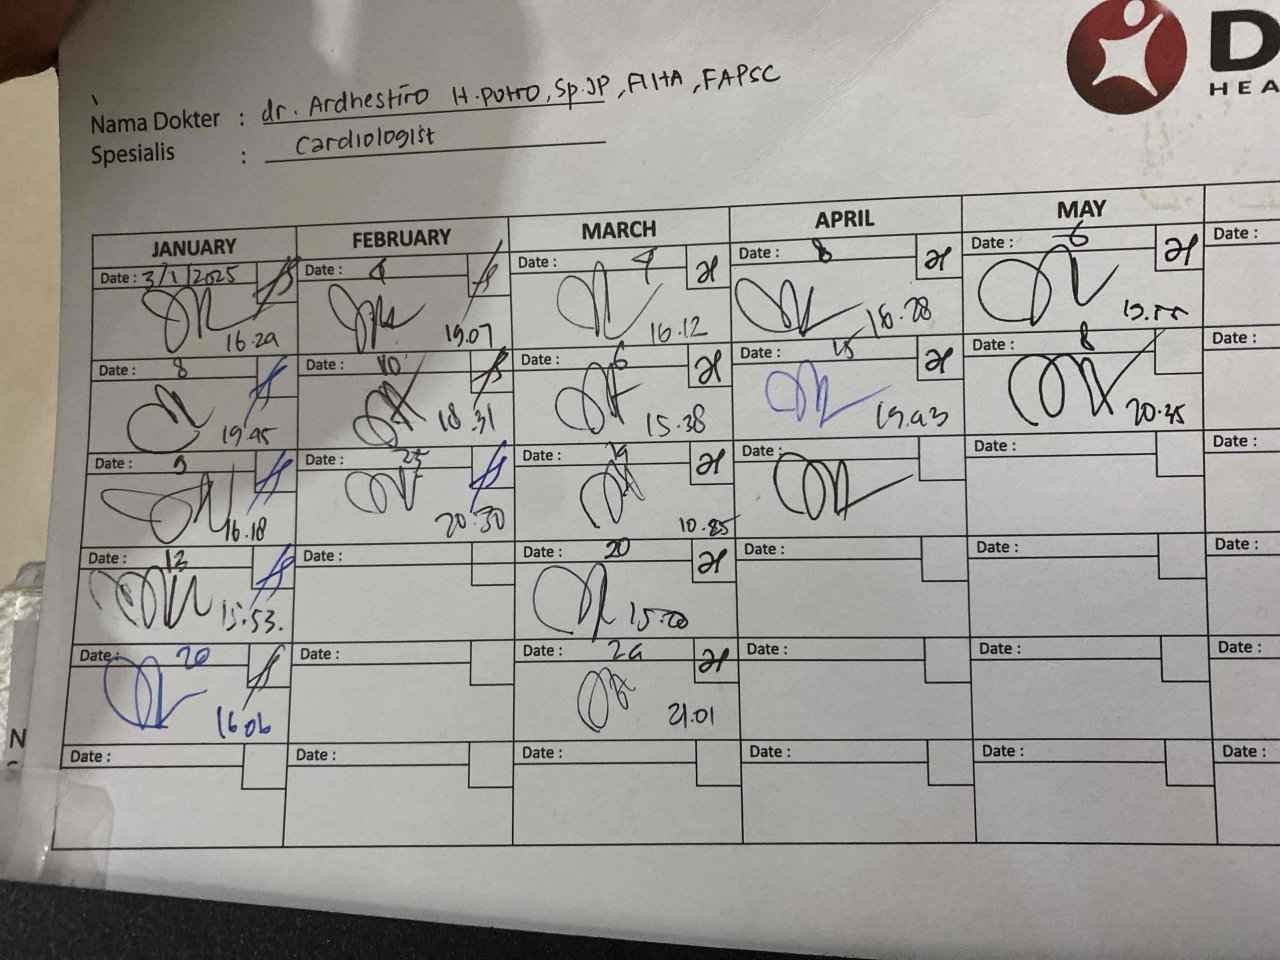 Nama Dokter : dr. Ardhestiro H. Putro, Sp.JP, FIHA, FAPSC
Spesialis : Cardiologist
D
HEA
JANUARY FEBRUARY MARCH APRIL MAY
Date : 3/1/2025 Date : 4 Date : 4 Date : 8 Date : 6 Date :
16.29 19.07 16.12 18.28
Date : 8 Date : 10 Date : 6 Date : 15 Date : 8 Date :
19.45 18.31 15.38 19.43 20.35
Date : 9 Date : 25 Date : 19 Date : Date : Date :
16.18 20.30
Date : 13 Date : Date : 20 Date : Date : Date :
15.53.
Date : 20 Date : Date : 24 Date : Date : Date :
16.06 21.01
Date : Date : Date : Date : Date : Date :
N